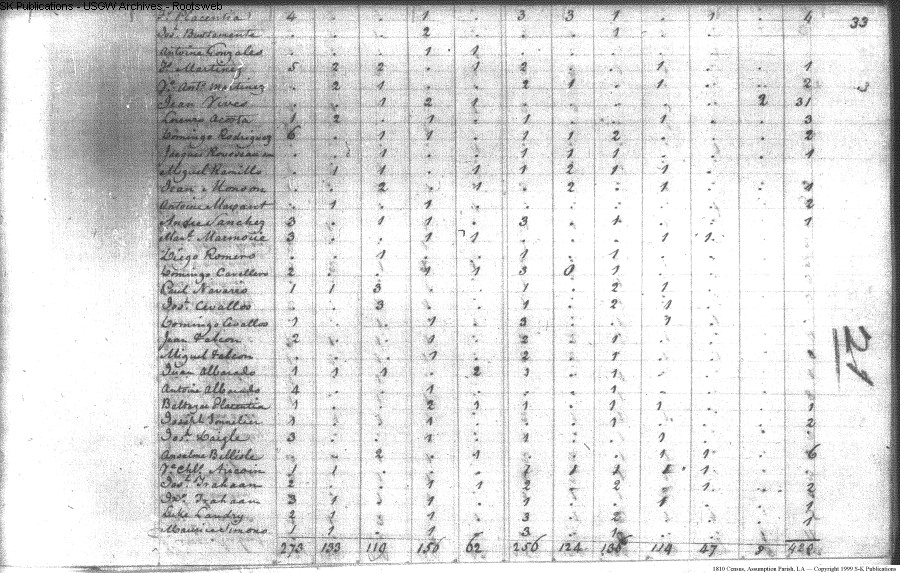 SK Publications - USGW Archives - Rootsweb
Placentia 4 . . 1 . 3 3 1 . 1 . 4 33
Jos. Bustamente . . . 2 . . . 1 . . . .
Antoine Gonzales . . . 1 1 . . . . . . .
Martinez 5 2 2 . 1 2 . . 1 . . 1
Vᵉ Antᵒ Martinez . 2 1 . . 2 1 . 1 . . 2 3
Jean Vives . . 1 2 1 . . . . . 2 31
Lorenzo Acosta 1 2 . 1 . 1 . . 1 . . 3
Domingo Rodriguez 6 . 1 1 . 1 1 2 . . . 2
Jacques . . 1 . . 1 1 1 . . . 1
Miguel Ramillo . 1 1 . 1 1 2 1 1 . . .
Jean Monson . . 2 . 1 . 2 . 1 . . 1
Antoine . 1 . 1 . . . . . . . 2
Andre Sanchez 3 . 1 1 . 3 . 1 . . . 1
Mart. 3 . . 1 1 . . . 1 1 . .
Diego Romero . . 1 . . 1 . 1 . . . .
Domingo Cavellero 2 . . 1 1 3 0 1 . . . .
Navaris 1 1 3 . . 1 . 2 1 . . .
Josᵗ Cevallos . . 3 . . 1 . 2 1 . . .
Domingo Cevallos 1 . . 1 . 3 . . 1 . . .
Jean Falcon 2 . . 1 . 2 2 1 . . . .
Miguel Falcon . . . 1 . 2 . 1 . . . 21
Juan Albarado 1 1 1 . 2 1 . 1 . . . .
Antoine Albarado 4 . . 1 . . . 1 . . . .
Baltazar Placentia 1 . . 2 1 1 . 1 1 . . 1
Joseph 1 . . 1 . . . 1 . . . 2
Josᵗ Daigle 3 . . 1 . 1 . . 1 . . .
Anselme Bellisle . . 2 . 1 . . . 1 1 . 6
Vᵉ Chls. Aucoin 1 1 . . . 1 1 1 1 1 . .
Josᵗ Trahaan 2 . . 1 1 2 . 2 . 1 . 2
Trahaan 3 1 . 1 . 1 . . 1 . . 1
Luke Landry 2 1 . 1 . 3 . 2 . . . 1
Maurice Simono 1 1 . 1 . 3 . 1 . . . .
273 133 119 156 62 256 124 114 47
1810 Census, Assumption Parish, LA — Copyright 1999 S-K Publications